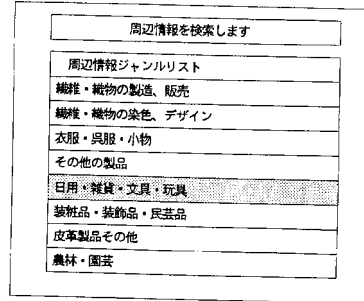 周辺情報を検索します
周辺情報ジャンルリスト
繊維・織物の製造、販売
繊維・織物の染色、デザイン
衣服・呉服・小物
その他の製品
日用・雑貨・文具・玩具
装粧品・装飾品・民芸品
皮革製品その他
農林・園芸